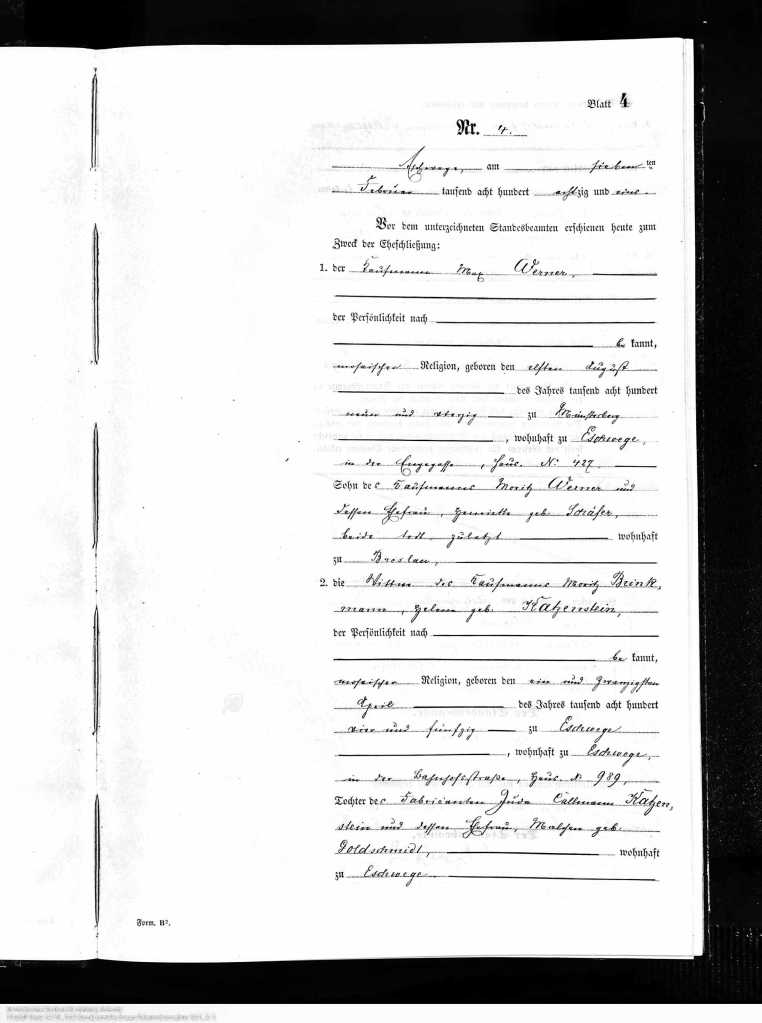 Blatt 4
Nr. 4.
Eschwege, am siebenten
Februar tausend acht hundert achtzig und eins.
Vor dem unterzeichneten Standesbeamten erschienen heute zum
Zweck der Eheschließung:
1. der Kaufmann Max Werner,
der Persönlichkeit nach
bekannt,
mosaischer Religion, geboren den elften August
des Jahres tausend acht hundert
neun und vierzig zu Münsterberg
, wohnhaft zu Eschwege,
in der Engegasse, Haus. No 427.
Sohn des Kaufmanns Moritz Werner und
dessen Ehefrau, Henriette geb. Schäfer,
beide todt, zuletzt wohnhaft
zu Breslau,
2. die Wittwe des Kaufmanns Moritz Brink-
mann, Helene geb. Katzenstein,
der Persönlichkeit nach
bekannt,
mosaischer Religion, geboren den ein und zwanzigsten
April des Jahres tausend acht hundert
vier und fünfzig zu Eschwege
, wohnhaft zu Eschwege,
in der Bahnhofstraße, Haus. No 989,
Tochter des Fabrikanten Juda Callmann Katzen-
stein und dessen Ehefrau, Malchen geb.
Goldschmidt, wohnhaft
zu Eschwege.
Form. B².